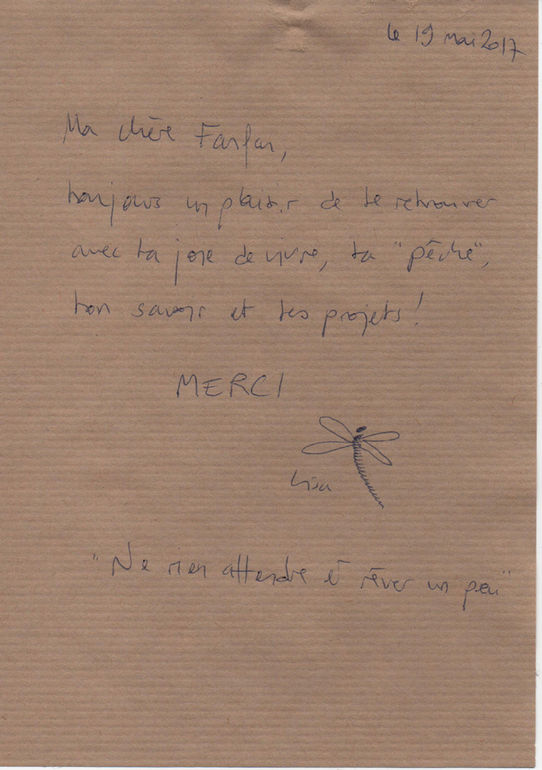 le 19 mai 2017
Ma chère Fanfan,
toujours un plaisir de te retrouver
avec ta joie de vivre, ta "pêche",
ton savoir et tes projets !
MERCI
Lisa
"Ne rien attendre et rêver un peu"